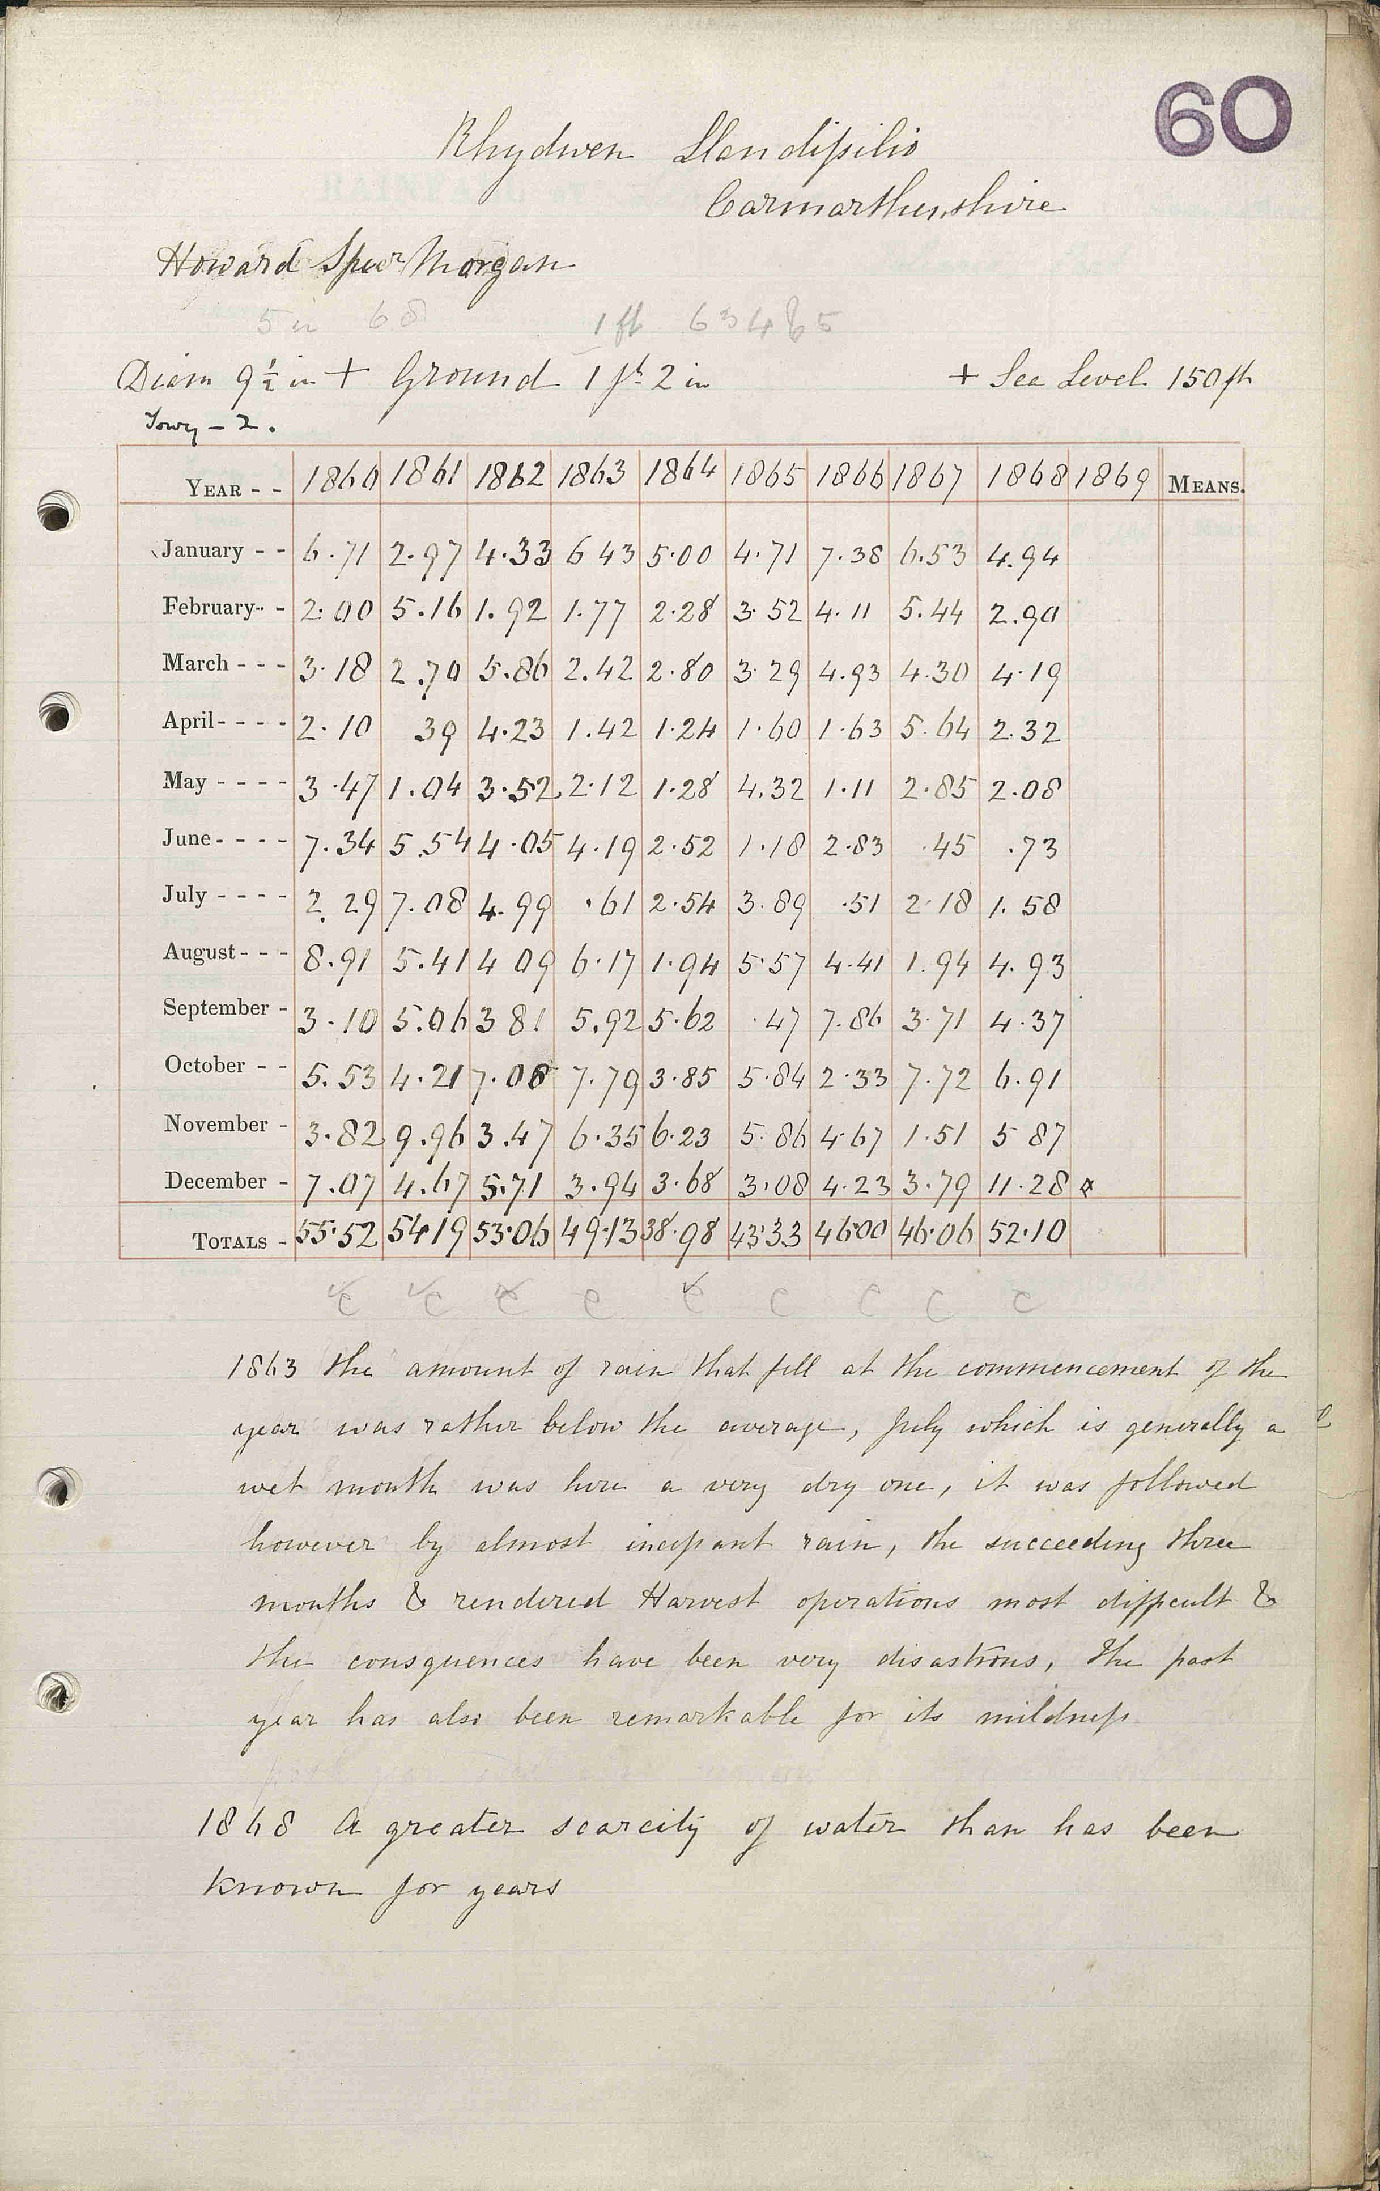 60
Rhydwen Llandissilio
Carmarthenshire
Howard Spear Morgan
5 in 68 1 ft 63465
Diam 9½ in + Ground 1 ft 2 in + Sea Level 150 ft
Towy - 2.
YEAR - - 1860 1861 1862 1863 1864 1865 1866 1867 1868 1869 MEANS.
January - - 6.71 2.97 4.33 6 43 5.00 4.71 7.38 6.53 4.94
February - - 2.00 5.16 1.92 1.77 2.28 3.52 4.11 5.44 2.90
March - - - 3.18 2.70 5.86 2.42 2.80 3.29 4.93 4.30 4.19
April - - - - 2.10 39 4.23 1.42 1.24 1.60 1.63 5.64 2.32
May - - - - 3.47 1.04 3.52 2.12 1.28 4.32 1.11 2.85 2.08
June - - - - 7.34 5.54 4.05 4.19 2.52 1.18 2.83 .45 .73
July - - - - 2.29 7.08 4.99 .61 2.54 3.89 .51 2.18 1.58
August - - - 8.91 5.41 4 09 6.17 1.94 5.57 4.41 1.94 4.93
September - 3.10 5.06 3 81 5.92 5.62 .47 7.86 3.71 4.37
October - - 5.53 4.21 7.08 7.79 3.85 5.84 2.33 7.72 6.91
November - 3.82 9.96 3.47 6.35 6.23 5.86 4.67 1.51 5 87
December - 7.07 4.67 5.71 3.94 3.68 3.08 4.23 3.79 11.28
TOTALS - 55.52 54 19 53.06 49.13 38.98 43.33 46.00 46.06 52.10
c c c c c c c c c
1863 the amount of rain that fell at the commencement of the
year was rather below the average, July which is generally a
wet month was here a very dry one, it was followed
however by almost incessant rain, the succeeding three
months & rendered Harvest operations most difficult &
the consquences have been very disastrous, The past
year has also been remarkable for its mildness
1868 A greater scarcity of water than has been
known for years